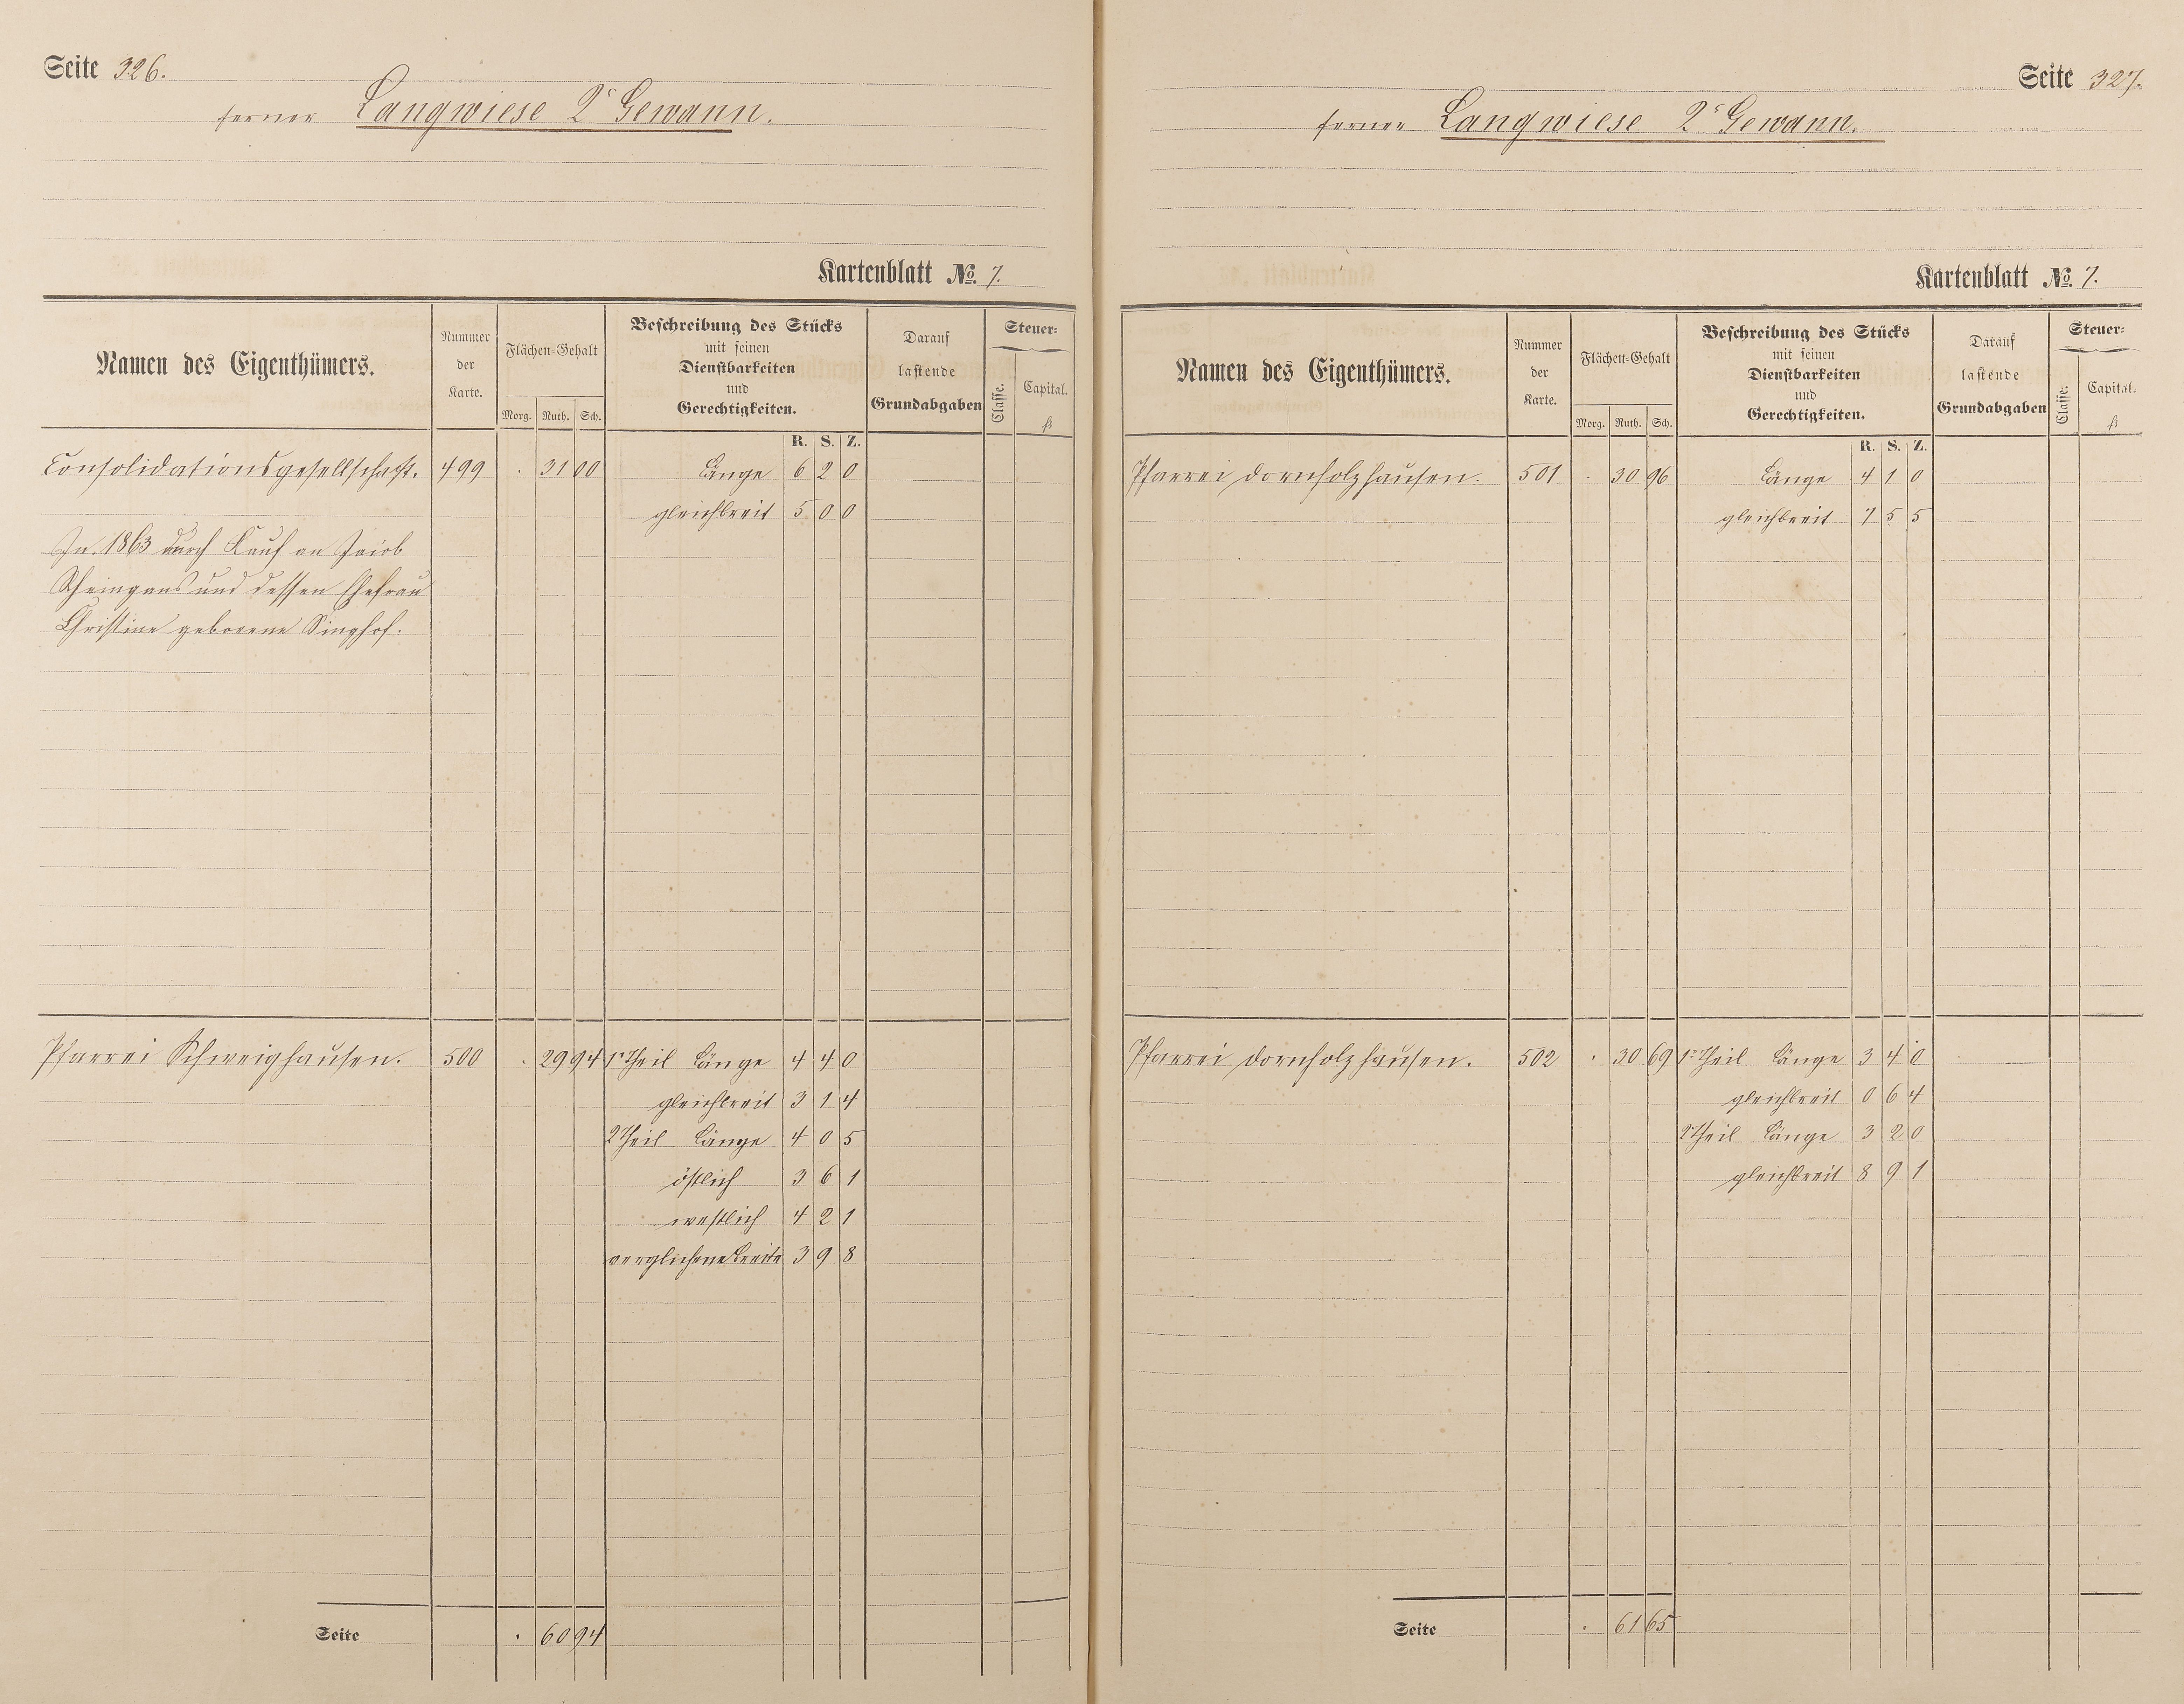 Seite 326.
ferner Langwiese 2r Gewann.
Kartenblatt No. 7.
Namen des Eigenthümers.
Nummer der Karte.
Flächen-Gehalt
Morg. Ruth. Sch.
Beschreibung des Stücks
mit seinen
Dienstbarkeiten
und
Gerechtigkeiten.
Darauf
lastende
Grundabgaben
Steuer-
Classe. Capital.
fl
R. S. Z.
Consolidationsgesellschaft. 499 . 31 00 Länge 6 2 0
gleichbreit 5 0 0
In 1863 durch Kauf an Jacob
Rheingans und dessen Ehefrau
Christine geborene Singhof.
Pfarrei Schweighausen. 500 . 29 94 1r Theil Länge 4 4 0
gleichbreit 3 1 4
2 Theil Länge 4 0 5
östlich 3 6 1
westlich 4 2 1
verglichene Breite 3 9 8
Seite . 60 94
Seite 327.
ferner Langwiese 2r Gewann.
Kartenblatt No. 7.
Namen des Eigenthümers.
Nummer der Karte.
Flächen-Gehalt
Morg. Ruth. Sch.
Beschreibung des Stücks
mit seinen
Dienstbarkeiten
und
Gerechtigkeiten.
Darauf
lastende
Grundabgaben
Steuer-
Classe. Capital.
fl
R. S. Z.
Pfarrei Dornholzhausen. 501 . 30 96 Länge 4 1 0
gleichbreit 7 5 5
Pfarrei Dornholzhausen. 502 . 30 69 1r Theil Länge 3 4 0
gleichbreit 0 6 4
2r Theil Länge 3 2 0
gleichbreit 8 9 1
Seite . 61 65